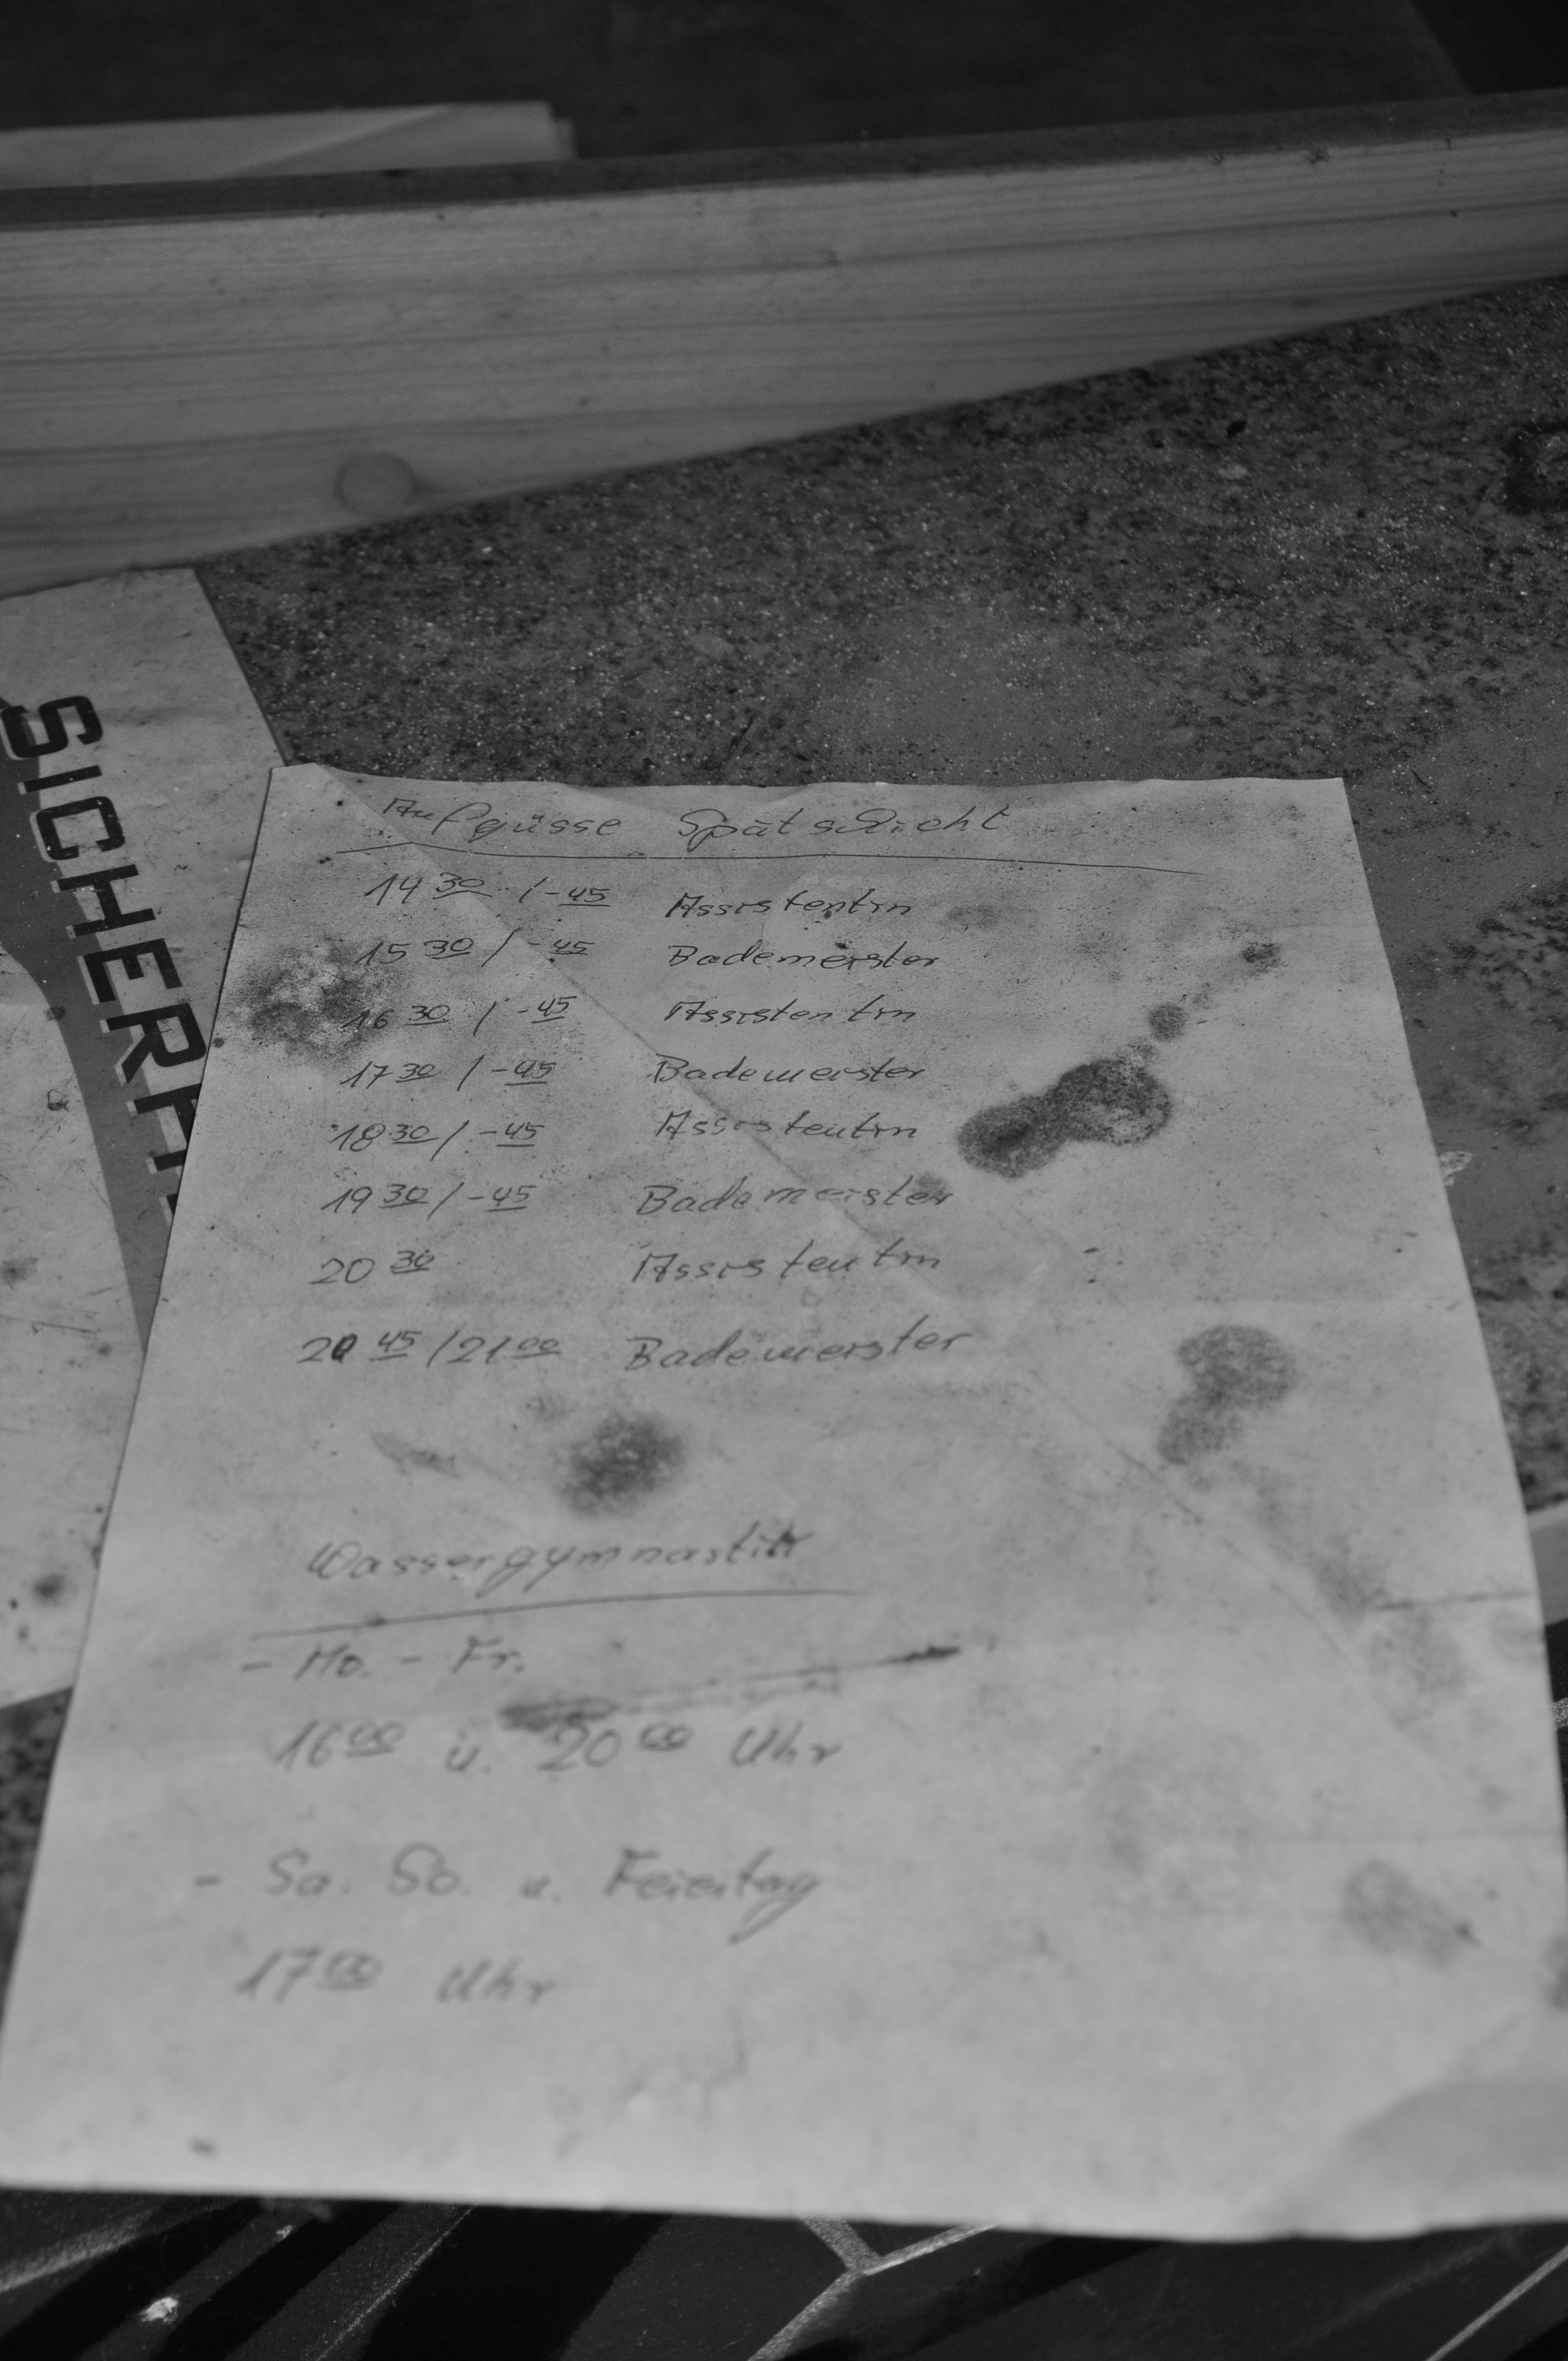 SICHERH
Aufgüsse Spätschicht
14 30 / - 45 Assistentin
15 30 / - 45 Bademeister
16 30 / - 45 Assistentin
17 30 / - 45 Bademeister
18 30 / - 45 Assistentin
19 30 / - 45 Bademeister
20 30 Assistentin
20 45 / 21 00 Bademeister
Wassergymnastik
- Mo. - Fr.
16 00 u. 20 00 Uhr
- Sa. So. u. Feiertag
17 00 Uhr